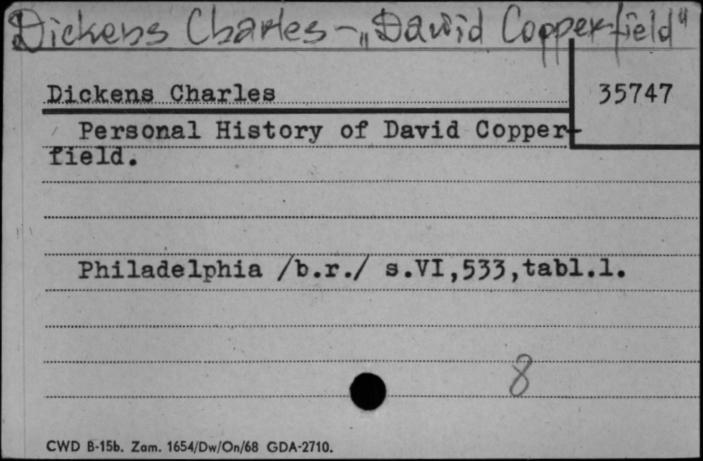 Dickens Charles – „David Copperfield"
Dickens Charles
35747
Personal History of David Copper-
field.
Philadelphia /b.r./ s.VI,533,tabl.1.
8
CWD B-15b. Zam. 1654/Dw/On/68 GDA-2710.